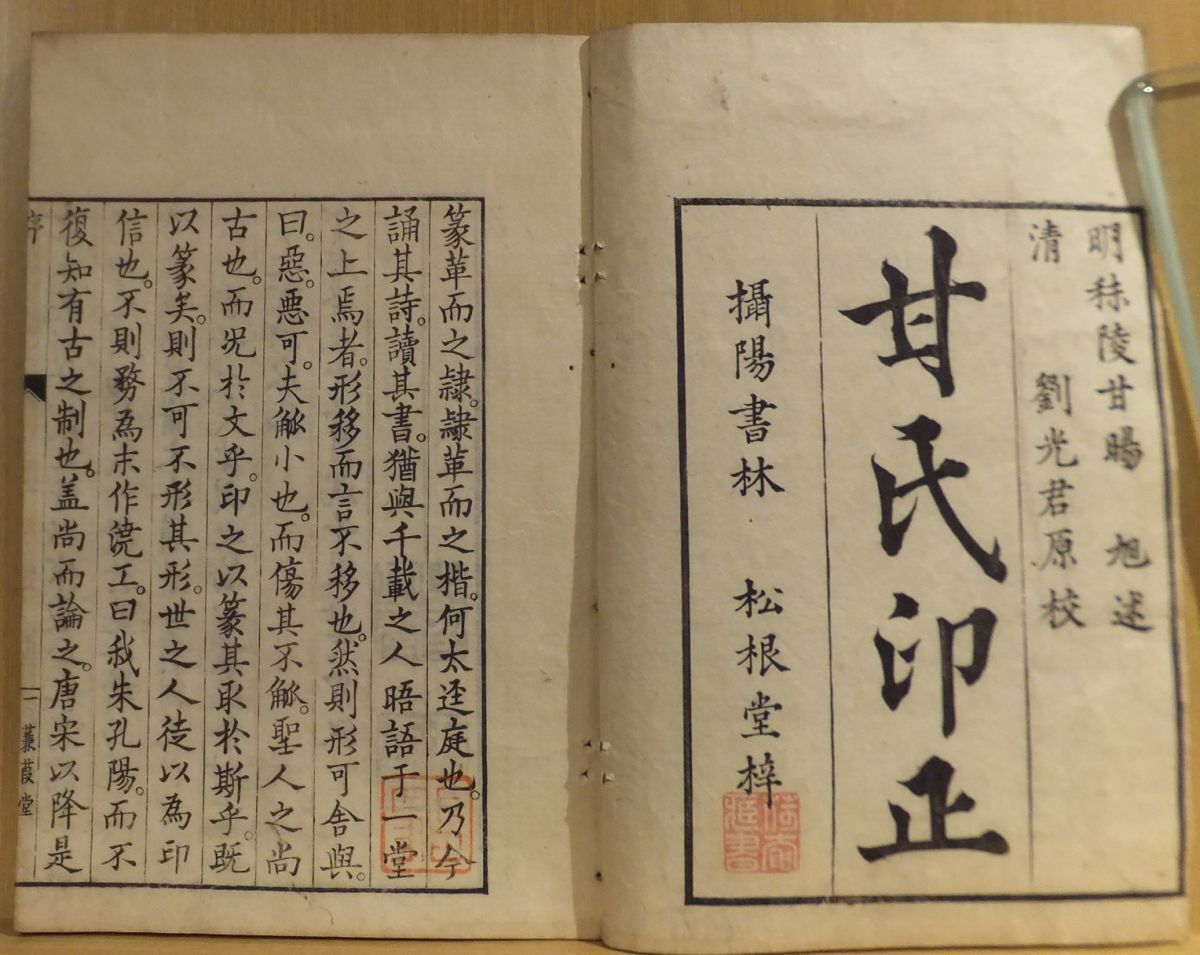 明秣陵甘暘　旭述
清　　劉光君原校
甘氏印正
攝陽書林　松根堂梓
篆革而之隷。隷革而之楷。何太逕庭也。乃今
誦其詩。讀其書。猶與千載之人晤語于一堂
之上焉者。形移而言不移也。然則形可舍與。
曰。惡。惡可。夫觚小也。而傷其不觚。聖人之尚
古也。而况於文乎。印之以篆其取於斯乎。既
以篆矣。則不可不形其形。世之人徒以為印
信也。不則務為末作澆工。曰我朱孔陽。而不
復知有古之制也。盖尚而論之。唐宋以降是
序
一　蒹葭堂